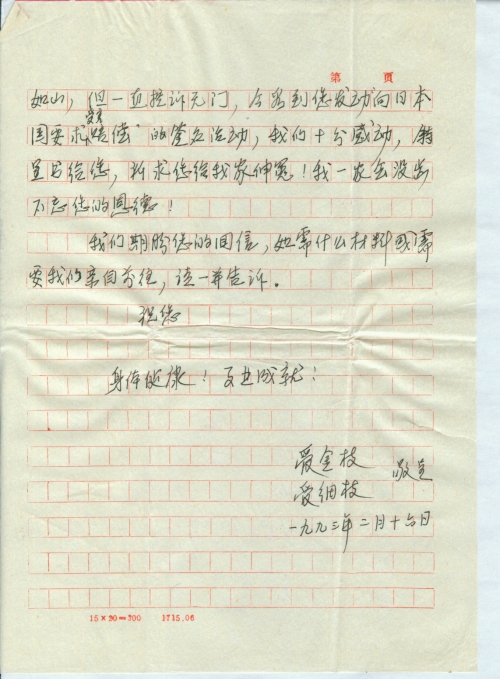 第 頁
如山，但一直控诉无门，今看到您发动向日本
受害
国要求"赔偿"的签名活动，我们十分感动，
呈书给您，祈求您给我家伸冤！我一家会没齿
不忘您的恩德！
我们期盼您的回信，如需什么材料或需
要我们亲自前往，请一并告诉。
祝您
身体健康！事业成就！
爱金枝
爱细枝 敬呈
一九九三年二月十六日
15×20=300 1715.06